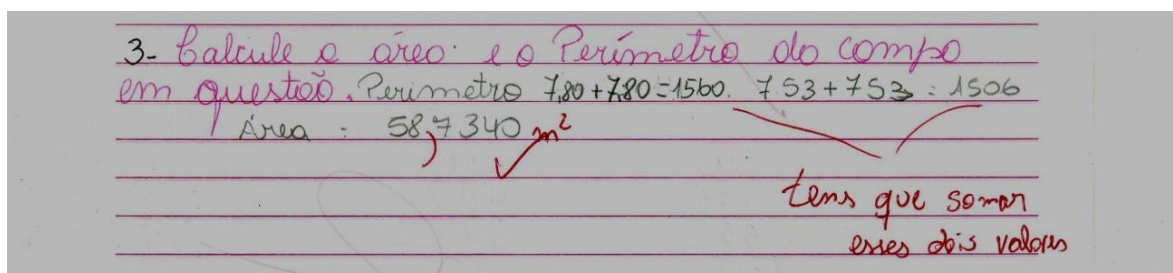 3- Calcule a área e o Perímetro do campo
em questão. Perimetro 7,80+7,80=1560. 7.53+753: 1506
Área : 58,7340 m²
tens que somar
esses dois valores